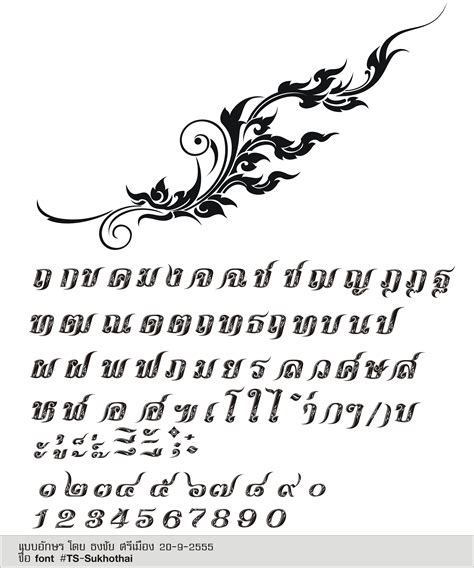 ก ข ค ฆ ง จ ฉ ช ซ ฌ ญ ฎ ฏ ฐ
ฑ ฒ ณ ด ต ถ ท ธ น บ ป
ผ ฝ พ ฟ ภ ม ย ร ล ว ศ ษ ส
ห ฬ อ ฮ ฯ เ โ ใ ไ
๑ ๒ ๓ ๔ ๕ ๖ ๗ ๘ ๙ ๐
1 2 3 4 5 6 7 8 9 0
แบบอักษร โดย ธงชัย ศรีเมือง 20-9-2555
ชื่อ font #TS-Sukhothai